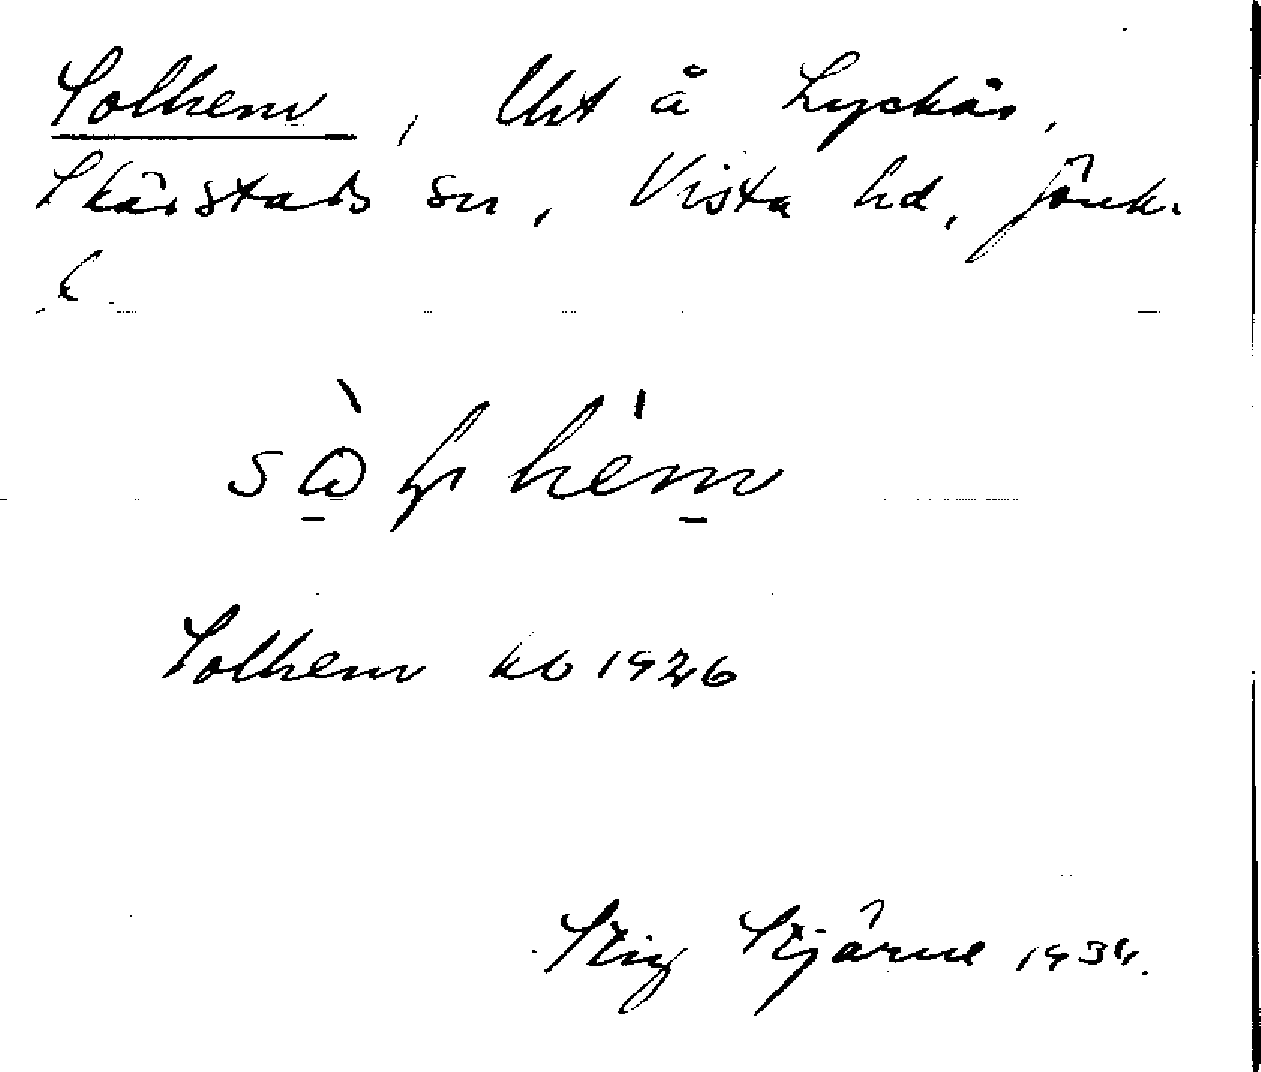 Solhem, Uht å Lyckås,
Skärstads sn, Vista hd, Jönk.
l.
Solhem kb 1926
Stig Stjärne 1934.